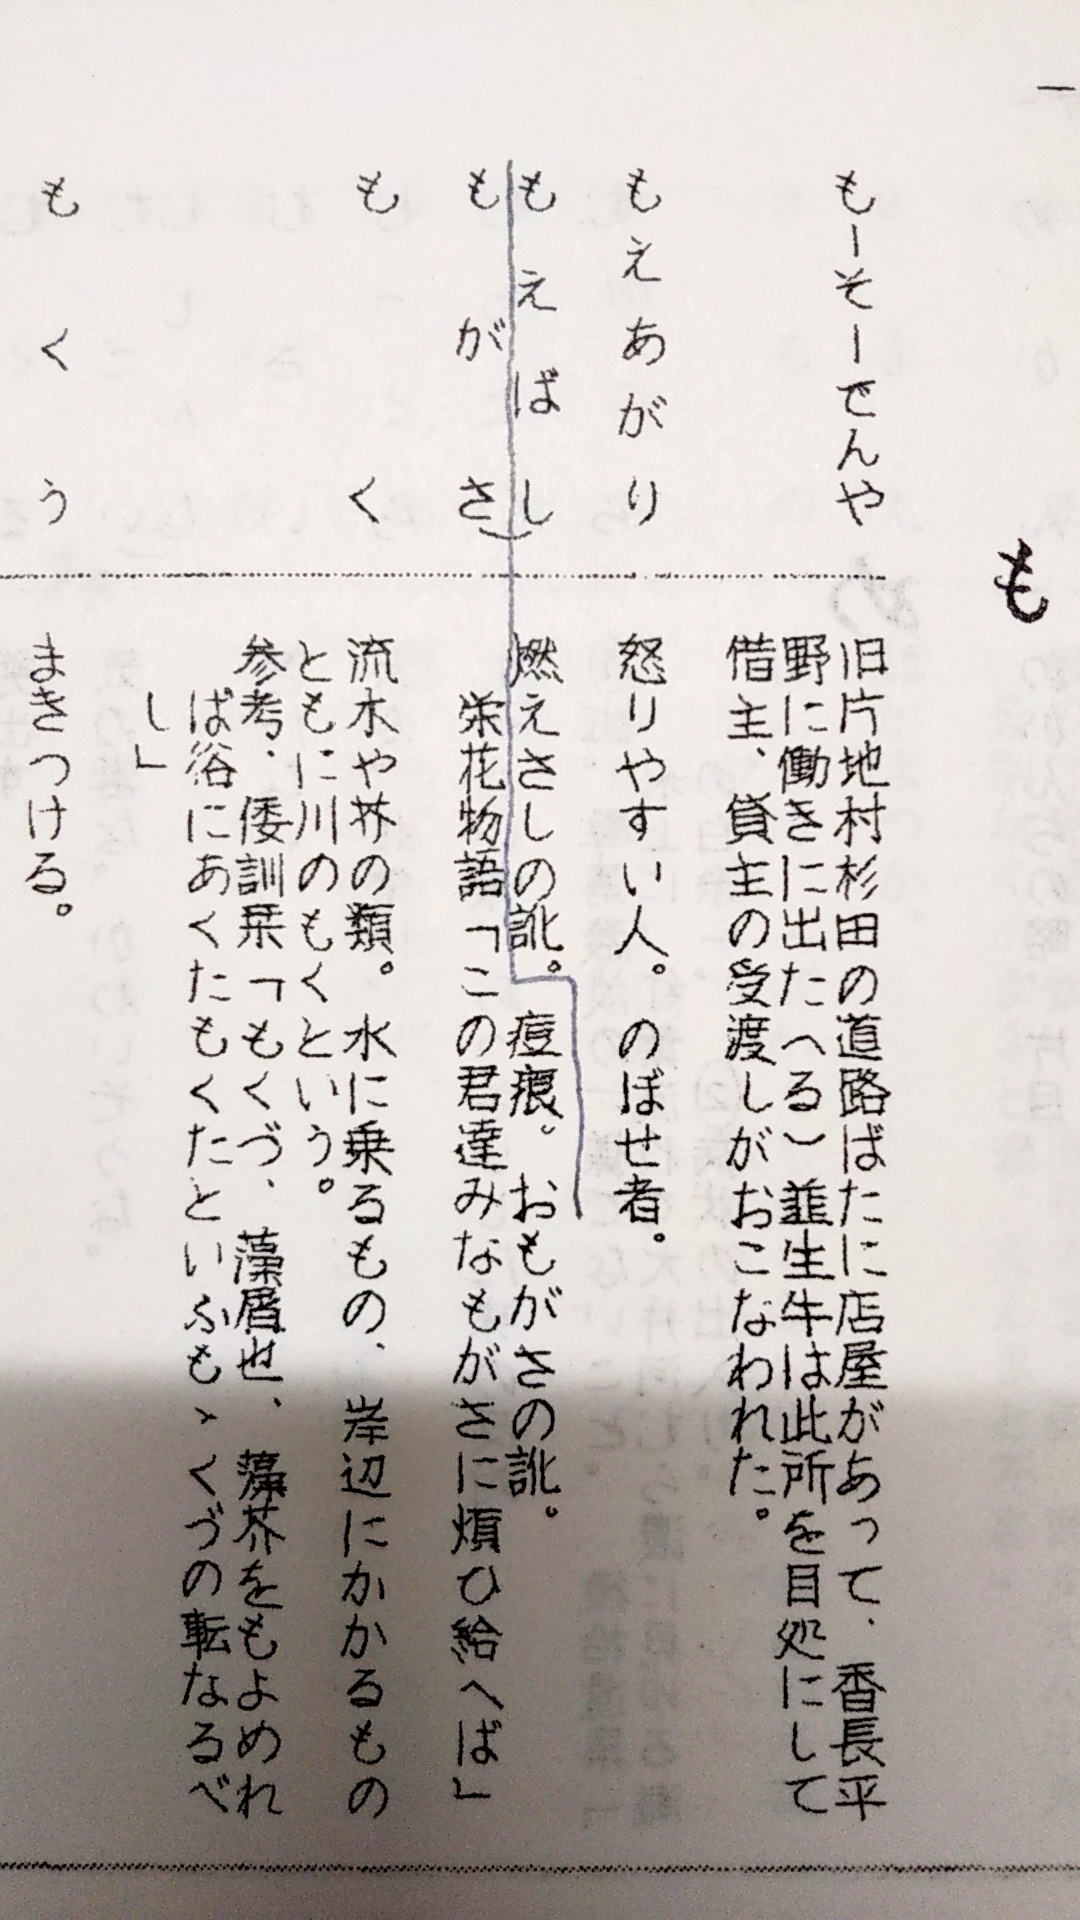 も
もーそーでんや
旧片地村杉田の道路ばたに店屋があって、香長平
野に働きに出たへる)韮生牛は此所を目処にして
借主、貸主の受渡しがおこなわれた。
もえあがり
怒りやすい人。のぼせ者。
もえばし
燃えさしの訛。
もがさ
痘痕。おもがさの訛。
栄花物語「この君達みなもがさに煩ひ給へば」
もく
流水や芥の類。水に乗るもの、岸辺にかかるもの
ともに川のもくという。
参考、倭訓栞「もくづ、藻屑也、藻芥をもよめれ
ば俗にあくたもくたといふもゝくづの転なるべ
し」
もくう
まきつける。